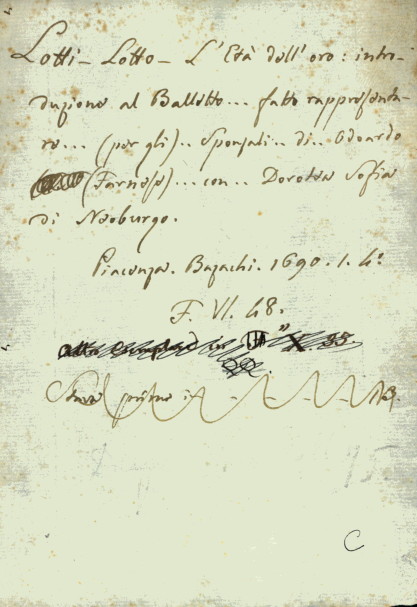 Lotti - Lotto - L'Età dell'oro: intro-
duzione al Balletto... fatto rappresenta-
re... (per gli).. Sponsali.. di.. Odoardo
(Farnese)... con.. Dorotea Sofia
di Neoburgo.
Piacenza. Bazachi. 1690. 1. 4º
F. VI. 48.
C